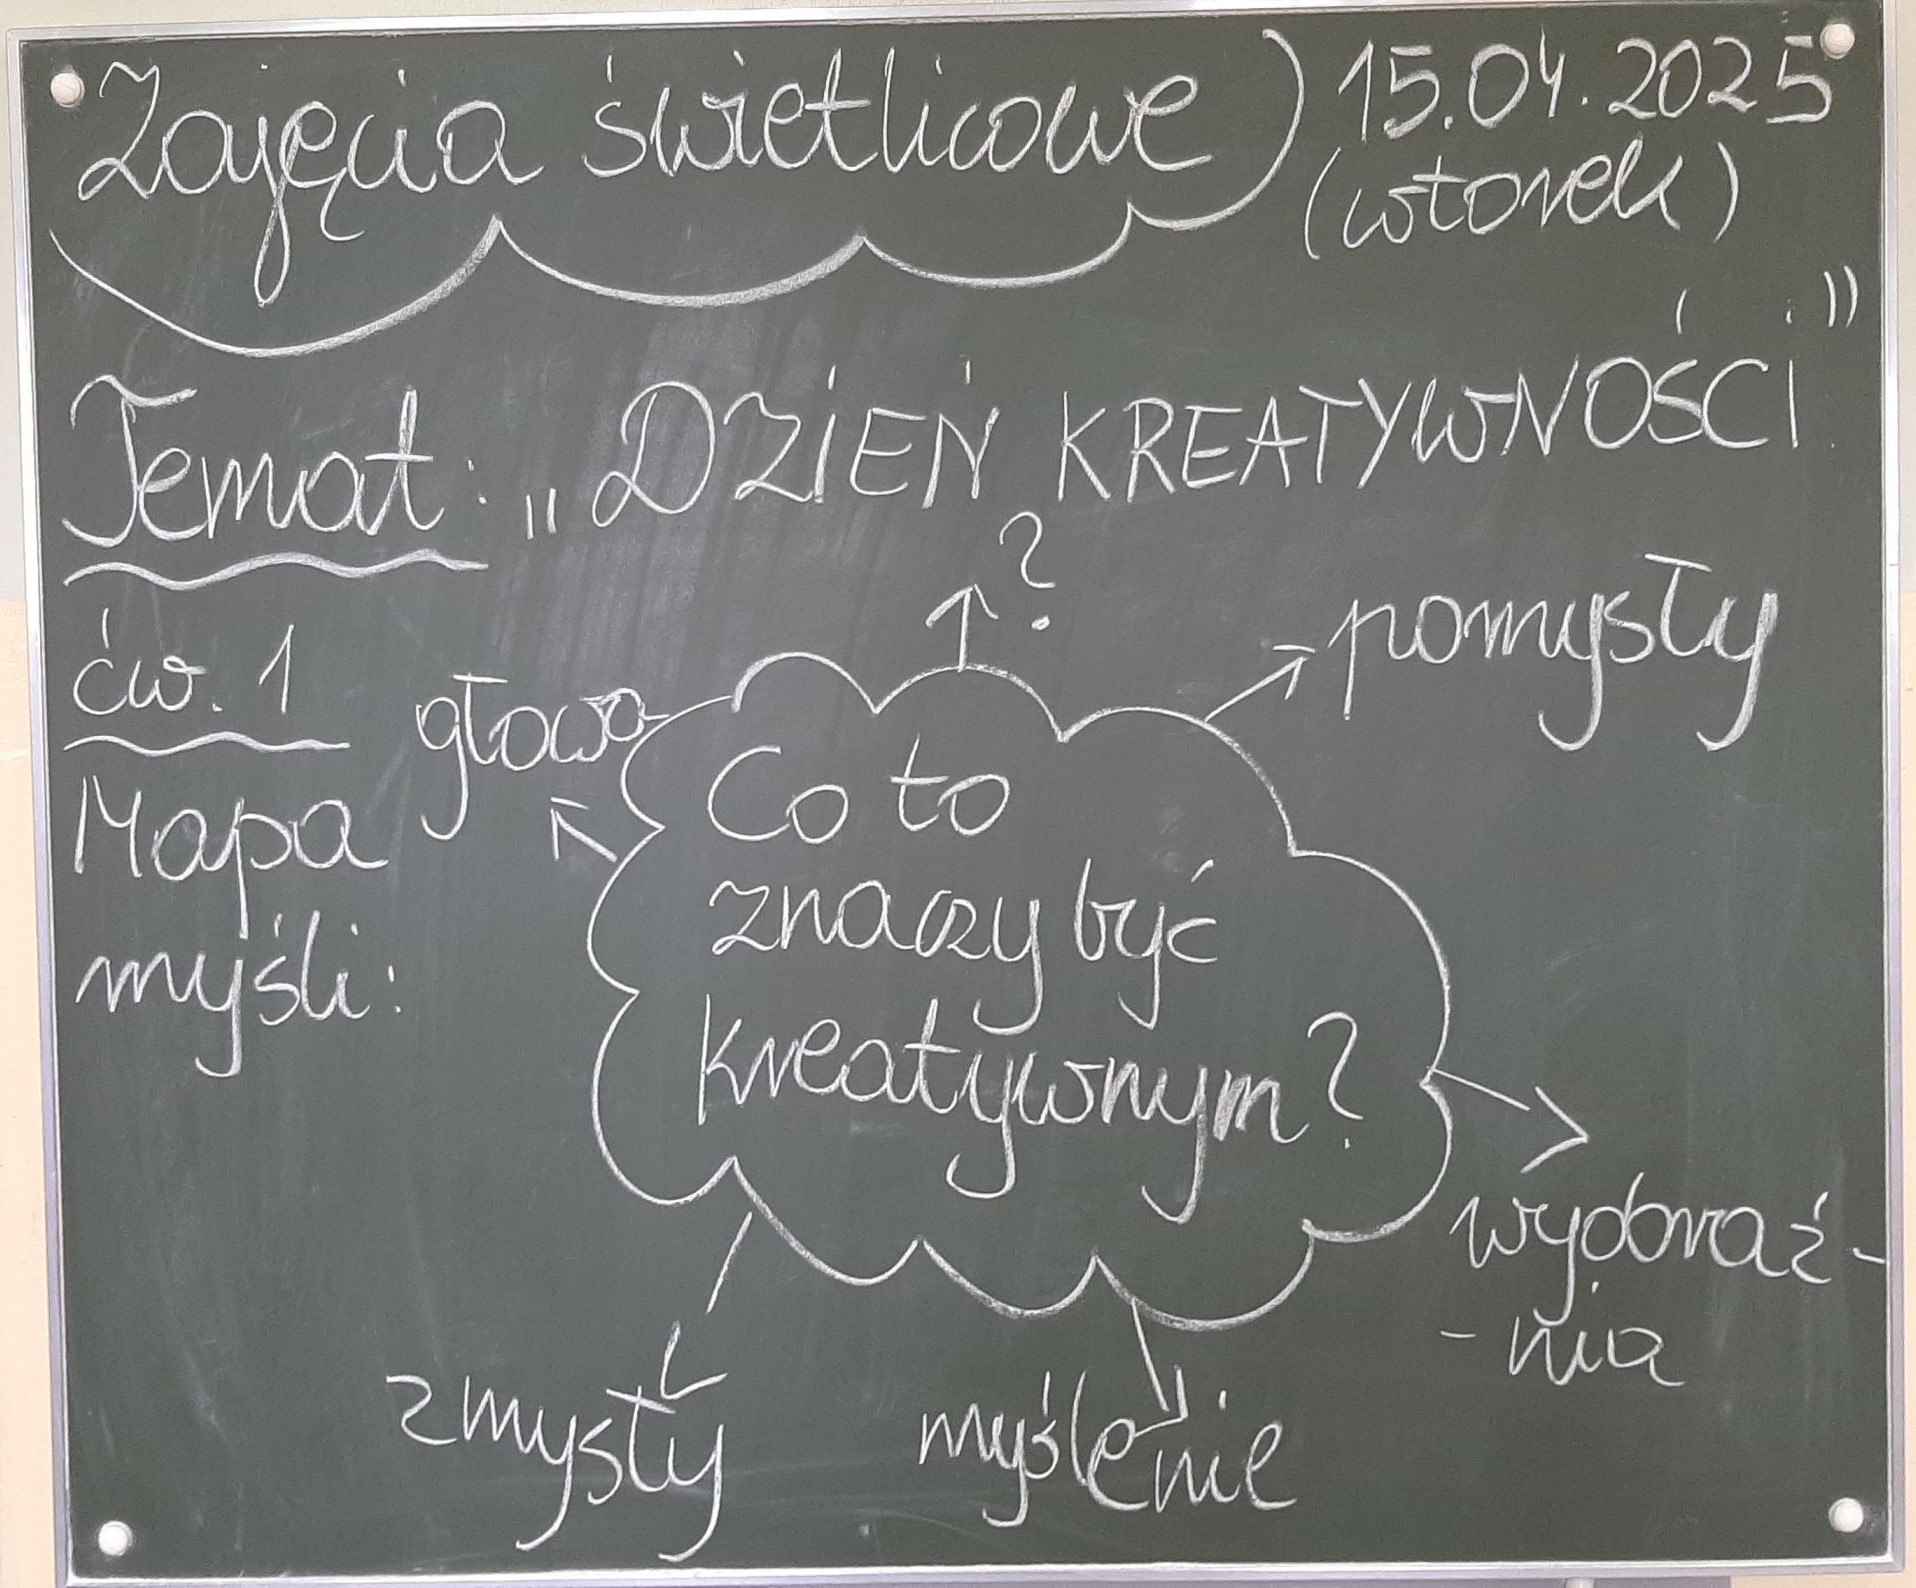 Zajęcia świetlicowe
15.04.2025
(wtorek)
Temat: „DZIEŃ KREATYWNOŚCI.”
ćw. 1
Mapa
myśli:
głowa
?
pomysły
Co to
znaczy być
kreatywnym?
wyobraź-
-nia
zmysły
myślenie